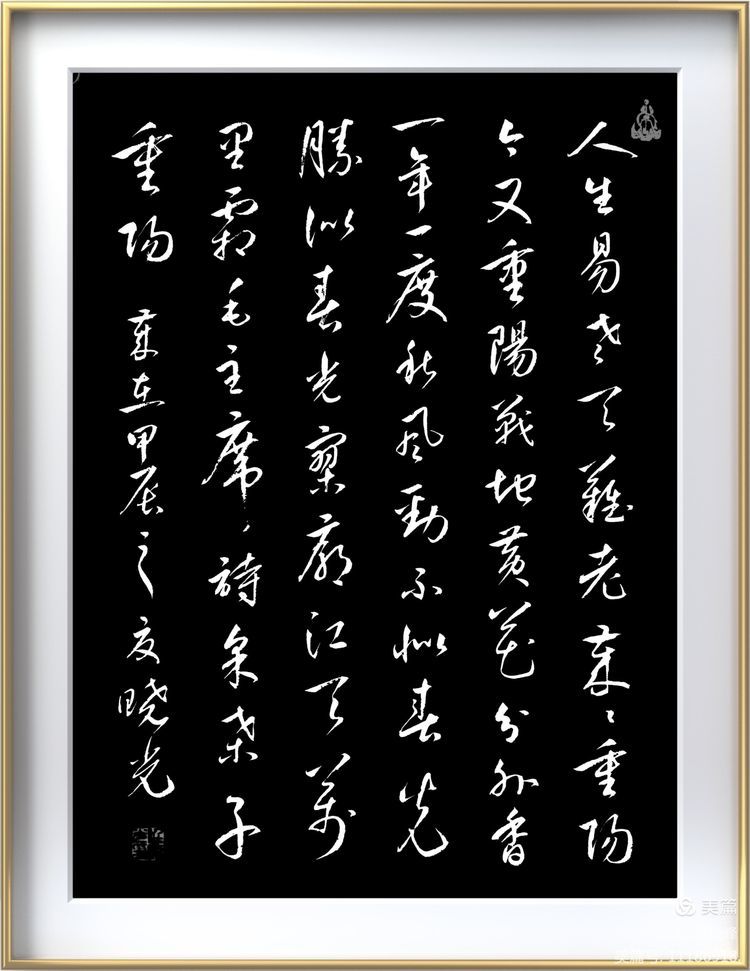 人生易老天難老歲〻重阳
今又重陽戰地黄花分外香
一年一度秋風勁不似春光
勝似春光寥廓江天萬
里霜毛主席詩采桑子
重阳 歲在甲辰之夏曉光
美篇